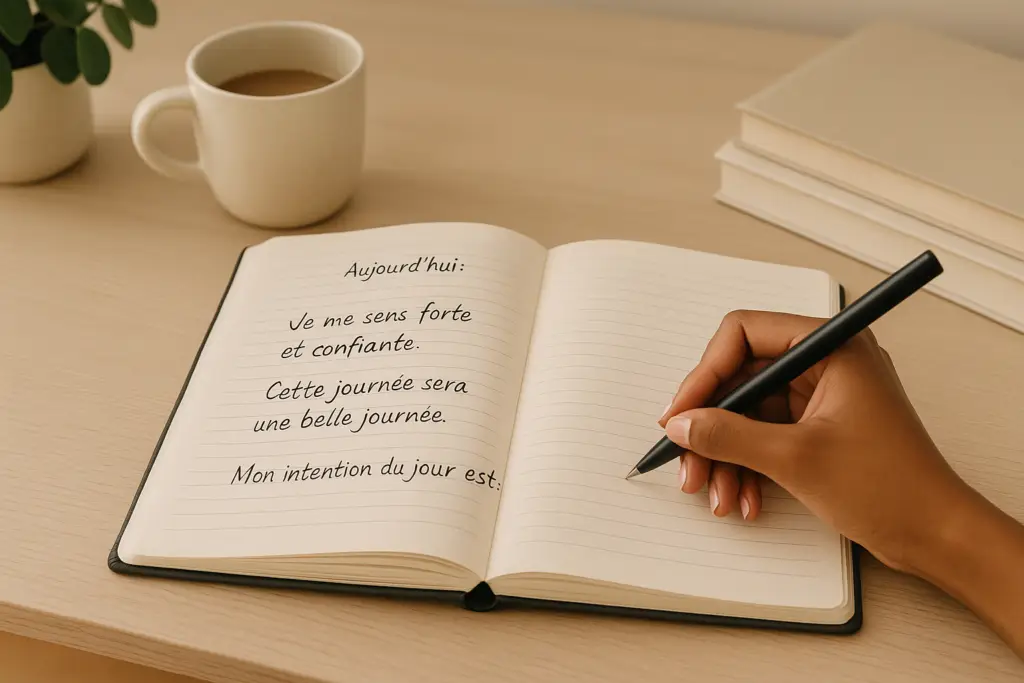 Aujourd'hui:
Je me sens forte
et confiante.
Cette journée sera
une belle journée.
Mon intention du jour est: